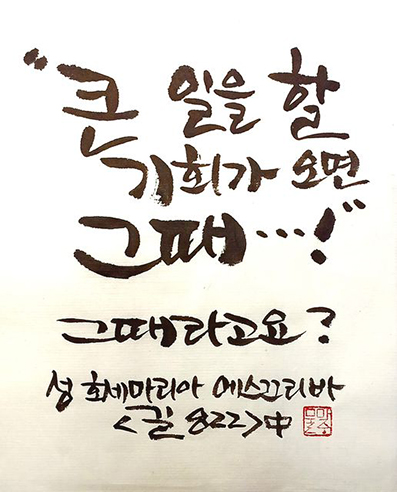 "큰 일을 할
기회가 오면
그때…!"
그때라고요?
성 호세마리아 에스끄리바
<길 822>中